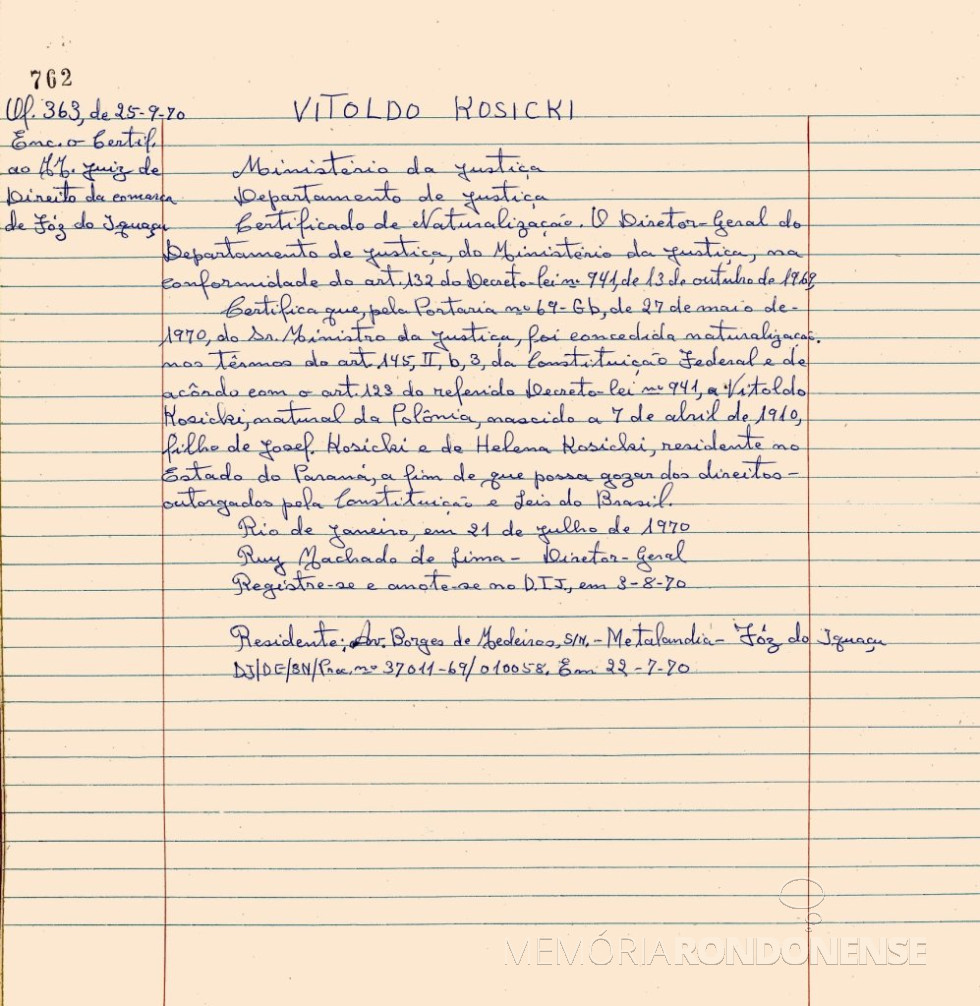 762
Of. 363, de 25-9-70
Enc. o Certif.
ao MM. Juiz de
Direito da comarca
de Fóz do Iguaçu
VITOLDO KOSICKI
Ministério da Justiça
Departamento de Justiça
Certificado de Naturalização. O Diretor-Geral do
Departamento de Justiça, do Ministério da Justiça, na
conformidade do art. 132 do Decreto-lei nº 941, de 13 de outubro de 1969,
Certifica que, pela Portaria nº 69-Gb, de 27 de maio de-
1970, do Sr. Ministro da Justiça, foi concedida naturalização.
nos têrmos do art. 145, II, b, 3, da Constituição Federal e de
acôrdo com o art. 123 do referido Decreto-lei nº 941, a Vitoldo
Kosicki, natural da Polônia, nascido a 7 de abril de 1910,
filho de Josef. Kosicki e de Helena Kosicki, residente no
Estado do Paraná, a fim de que possa gozar dos direitos-
outorgados pela Constituição e Leis do Brasil.
Rio de Janeiro, em 21 de julho de 1970
Ruy Machado de Lima - Diretor-Geral
Registre-se e anote-se no D.I.J., em 3-8-70
Residente: Av. Borges de Medeiros, S/N. - Metalandia - Fóz do Iguaçu
DJ/DE/SN/Proc. nº 37011-69/010058. Em 22-7-70
MEMÓRIARONDONENSE